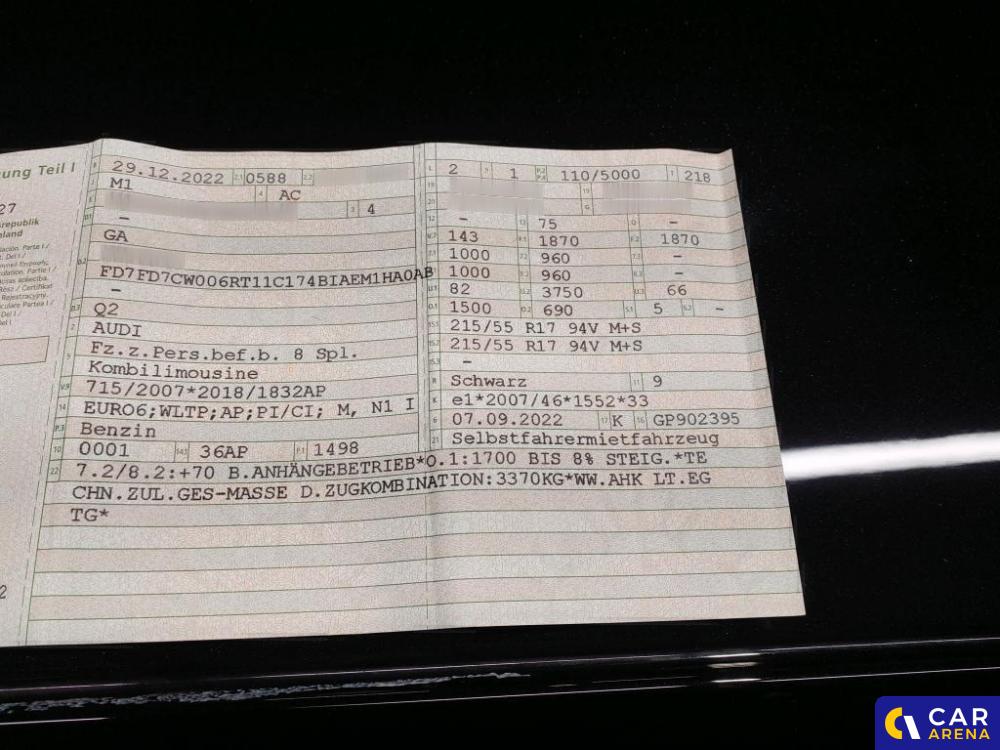 ung Teil I
27
srepublik
hland
29.12.2022 0588
M1 AC
4
–
GA
FD7FD7CW006RT11C174BIAEM1HA0AB
–
Q2
AUDI
Fz.z.Pers.bef.b. 8 Spl.
Kombilimousine
715/2007*2018/1832AP
EURO6;WLTP;AP;PI/CI; M, N1 I
Benzin
0001 36AP 1498
2 1 110/5000 218
– 75 –
143 1870 1870
1000 960 –
1000 960 –
82 3750 66
1500 690 5 –
215/55 R17 94V M+S
215/55 R17 94V M+S
–
Schwarz 9
e1*2007/46*1552*33
07.09.2022 K GP902395
Selbstfahrermietfahrzeug
7.2/8.2:+70 B.ANHÄNGEBETRIEB*O.1:1700 BIS 8% STEIG.*TE
CHN.ZUL.GES-MASSE D.ZUGKOMBINATION:3370KG*WW.AHK LT.EG
TG*
2
CAR
ARENA